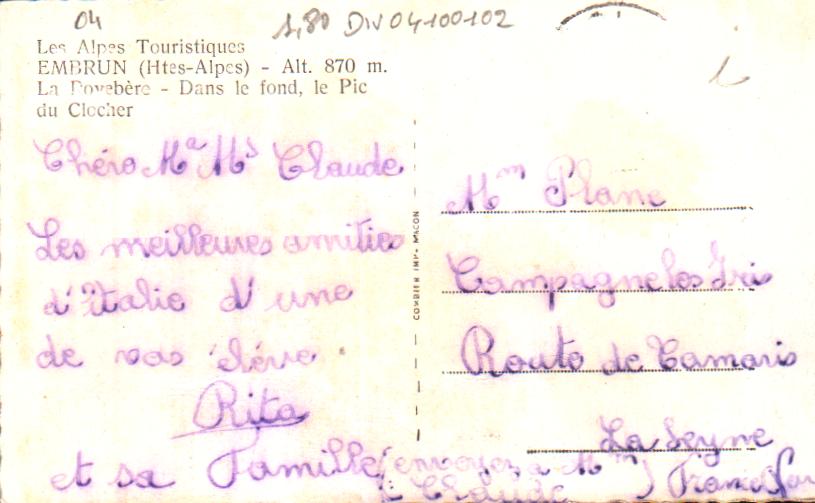 04
1,80 DIV04-100102
Les Alpes Touristiques
EMBRUN (Htes-Alpes) - Alt. 870 m.
La - Dans le fond, le Pic
du Clocher
Chéro Ma Ms Claude
Les meilleures amities
d'italie d'une
de vos élève
Rita
et sa Famille
(envoyez a Mm
Claude)
COMBIER IMP. MACON
Mm Plane
Campagne les Iris
Route de Tamaris
La Seyne
France Var